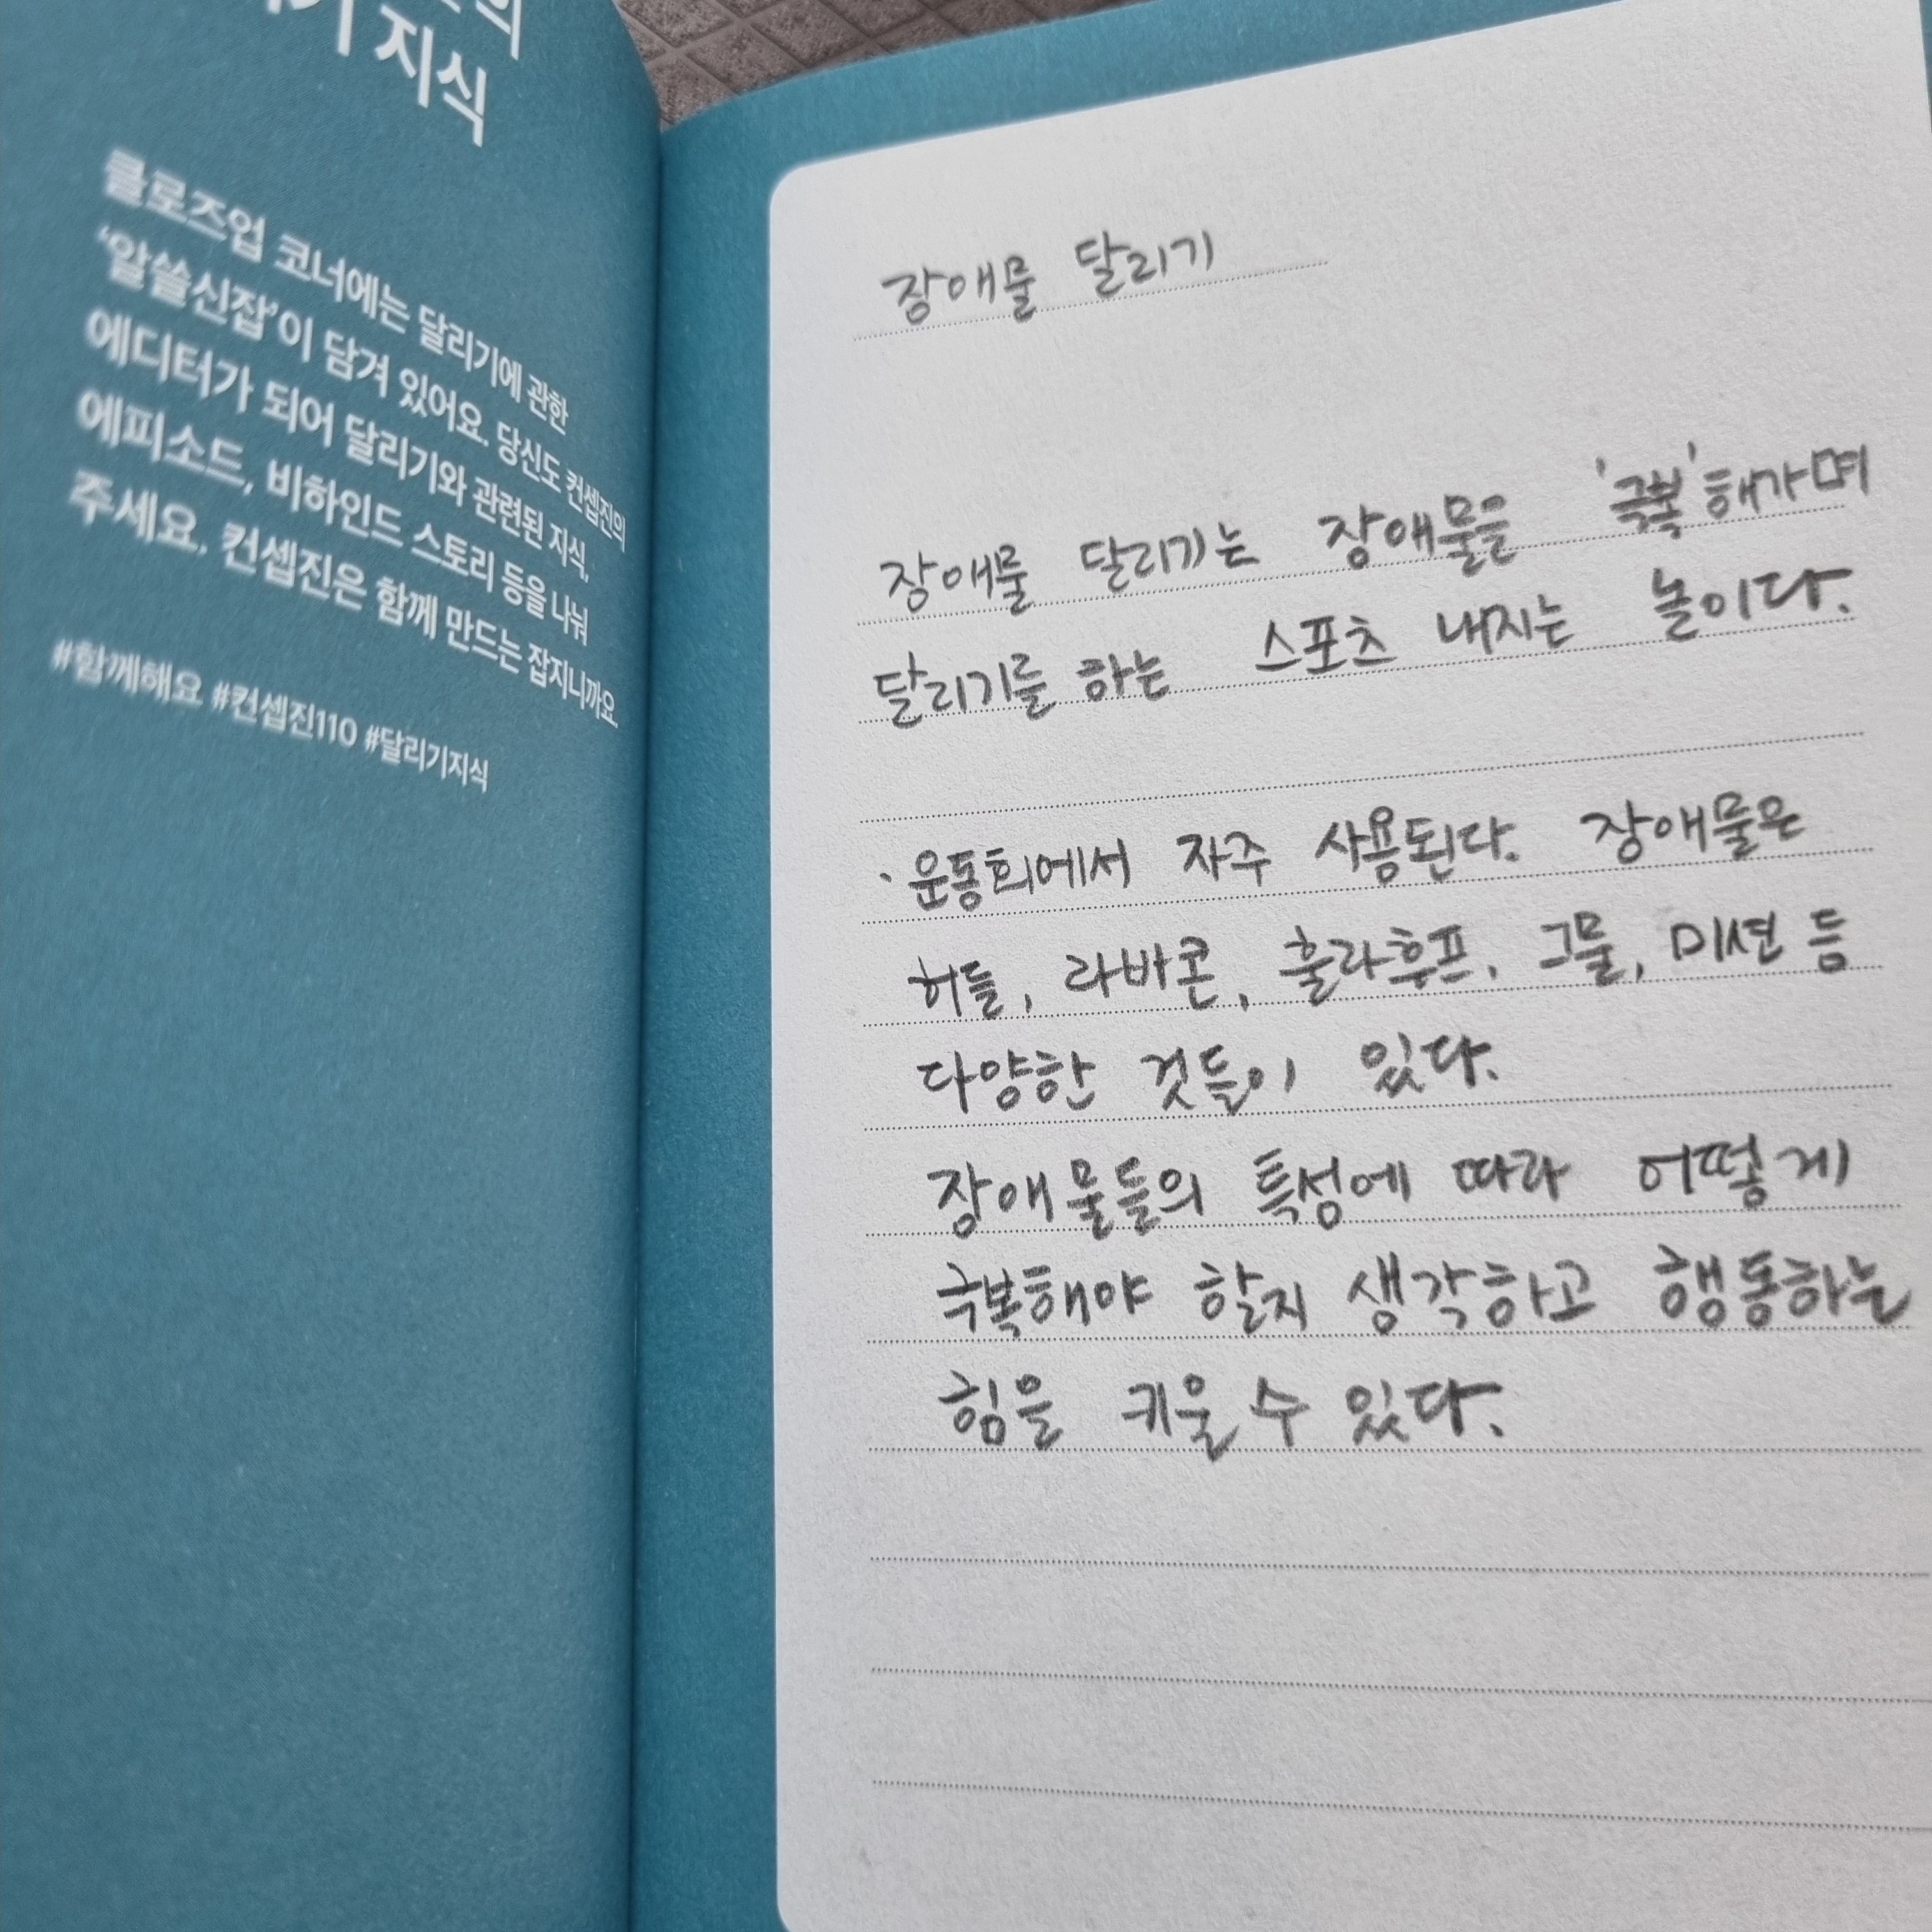 지식
클로즈업 코너에는 달리기에 관한
‘알쓸신잡’이 담겨 있어요. 당신도 컨셉진의
에디터가 되어 달리기와 관련된 지식,
에피소드, 비하인드 스토리 등을 나눠
주세요. 컨셉진은 함께 만드는 잡지니까요.
#함께해요 #컨셉진110 #달리기지식
장애물 달리기
장애물 달리기는 장애물을 '극복'해가며
달리기를 하는 스포츠 내지는 놀이다.
· 운동회에서 자주 사용된다. 장애물은
허들, 라바콘, 훌라후프, 그물, 미션 등
다양한 것들이 있다.
장애물들의 특성에 따라 어떻게
극복해야 할지 생각하고 행동하는
힘을 키울 수 있다.